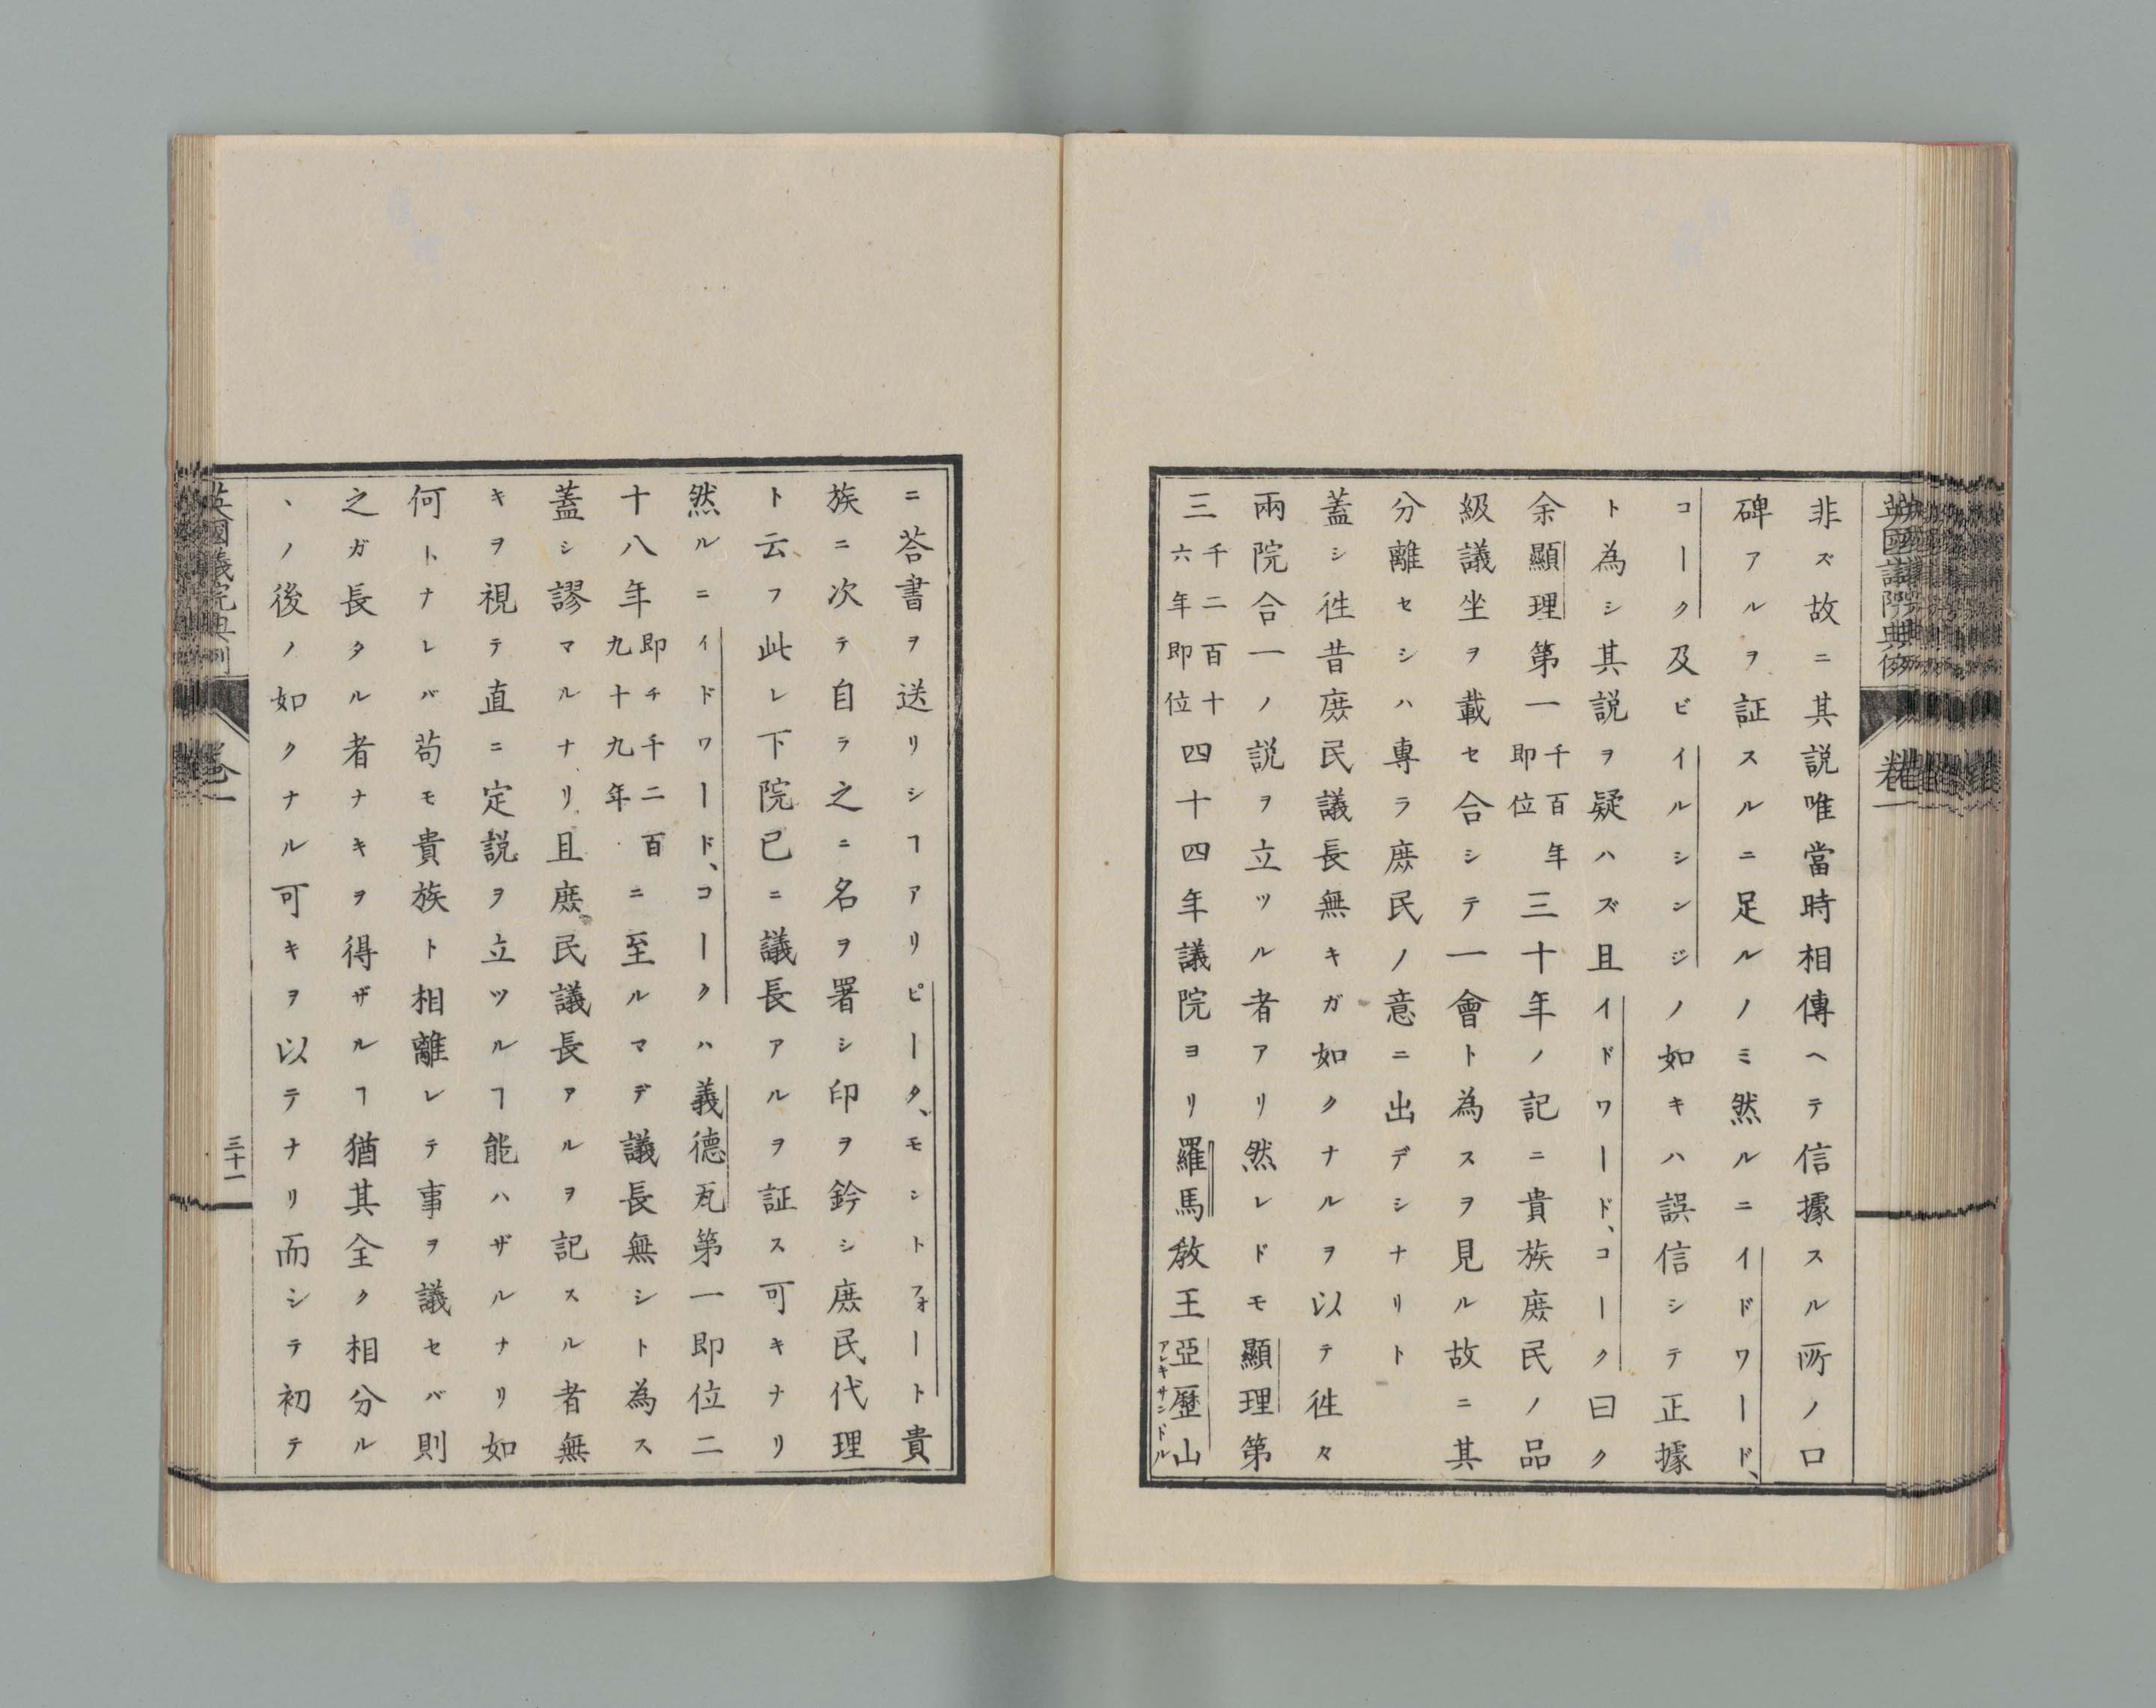 非ズ故ニ其説唯當時相傳ヘテ信據スル所ノ口
碑アルヲ証スルニ足ルノミ然ルニイドワード、
コーク及ビイルシンジノ如キハ誤信シテ正據
ト為シ其説ヲ疑ハズ且イドワード、コーク曰ク
余顯理第一千百年即位三十年ノ記ニ貴族庶民ノ品
級議坐ヲ載セ合シテ一會ト為スヲ見ル故ニ其
分離セシハ專ラ庶民ノ意ニ出デシナリト
蓋シ徃昔庶民議長無キガ如クナルヲ以テ徃々
兩院合一ノ説ヲ立ツル者アリ然レドモ顯理第
三千二百十六年即位四十四年議院ヨリ羅馬敎王亞歷山アレキサンドル
英國議院典例 卷一
ニ荅書ヲ送リシヿアリピータ、モントフォート貴
族ニ次テ自ラ之ニ名ヲ署シ印ヲ鈐シ庶民代理
ト云フ此レ下院已ニ議長アルヲ証ス可キナリ
然ルニイドワード、コークハ義德瓦第一即位二
十八年即チ千二百九十九年ニ至ルマデ議長無シト為ス
蓋シ謬マルナリ且庶民議長アルヲ記スル者無
キヲ視テ直ニ定説ヲ立ツルヿ能ハザルナリ如
何トナレバ苟モ貴族ト相離レテ事ヲ議セバ則
之ガ長タル者ナキヲ得ザルヿ猶其全ク相分ル
、ノ後ノ如クナル可キヲ以テナリ而シテ初テ
英國議院典例 卷一 三十一